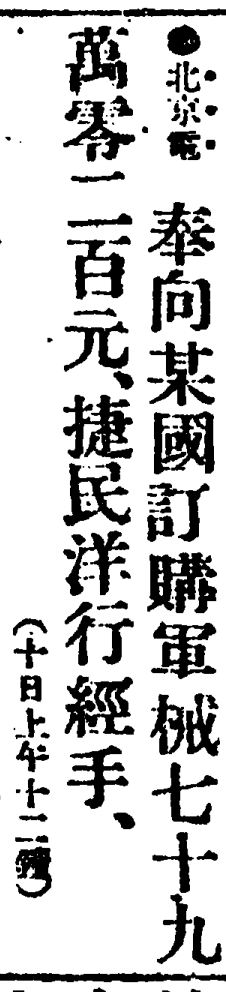 ●北京電　奉向某國訂購軍械七十九
萬零二百元、捷民洋行經手、
（十日上午十二鐘）